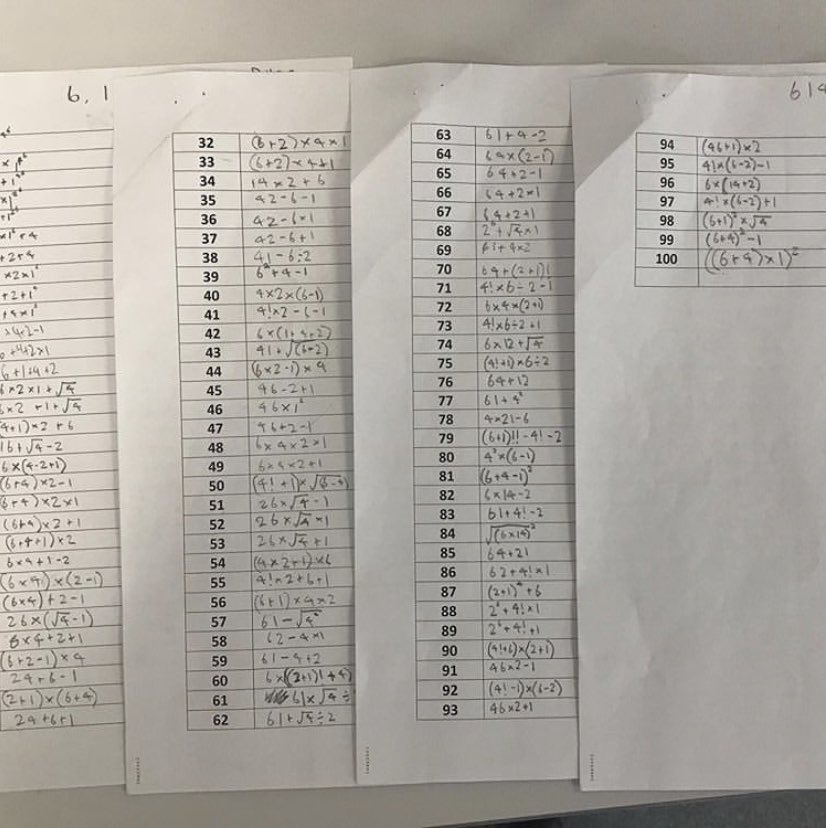 6, 1
614
+4
+2+4
×2×1²
+2+1⁴
+4×1²
×4+2-1
+4+2×1
6+1+4+2
6×2×1+√4
6×2+1+√4
(4+1)×2+6
16+√4-2
6×(4-2+1)
(6+4)×2-1
(6+4)×2×1
(6+4)×2+1
(6+4+1)×2
6×4+1-2
(6×4)×(2-1)
(6×4)+2-1
26×(√4-1)
6×4+2+1
(6+2-1)×4
24+6-1
(2+1)×(6+4)
24+6+1
32 (6+2)×4×1
33 (6+2)×4+1
34 14×2+6
35 42-6-1
36 42-6×1
37 42-6+1
38 41-6÷2
39 6²+4-1
40 4×2×(6-1)
41 4!×2-6-1
42 6×(1+4+2)
43 41+√(6-2)
44 (6×2-1)×4
45 46-2+1
46 46×1²
47 46+2-1
48 6×4×2×1
49 6×4×2+1
50 (4!+1)×√(6-2)
51 26×√4-1
52 26×√4×1
53 26×√4+1
54 (4×2+1)×6
55 4!×2+6+1
56 (6+1)×4×2
57 61-√4²
58 62-4×1
59 61-4+2
60 6×((2+1)!+4)
61 61×√4÷
62 61+√4÷2
63 61+4-2
64 64×(2-1)
65 64+2-1
66 64+2×1
67 64+2+1
68 2⁶+√4×1
69 61+4×2
70 64+(2+1)!
71 4!×6÷2-1
72 6×4×(2+1)
73 4!×6÷2+1
74 6×12+√4
75 (4!+1)×6÷2
76 64+12
77 61+4²
78 4×21-6
79 (6+1)!!-4!-2
80 4²×(6-1)
81 (6+4-1)²
82 6×14-2
83 61+4!-2
84 √(6×14)²
85 64+21
86 62+4!×1
87 (2+1)⁴+6
88 2⁶+4!×1
89 2⁶+4!+1
90 (4!+6)×(2+1)
91 46×2-1
92 (4!-1)×(6-2)
93 46×2+1
94 (46+1)×2
95 4!×(6-2)-1
96 6×(14+2)
97 4!×(6-2)+1
98 (6+1)²×√4
99 (6+4)²-1
100 ((6+4)×1)²